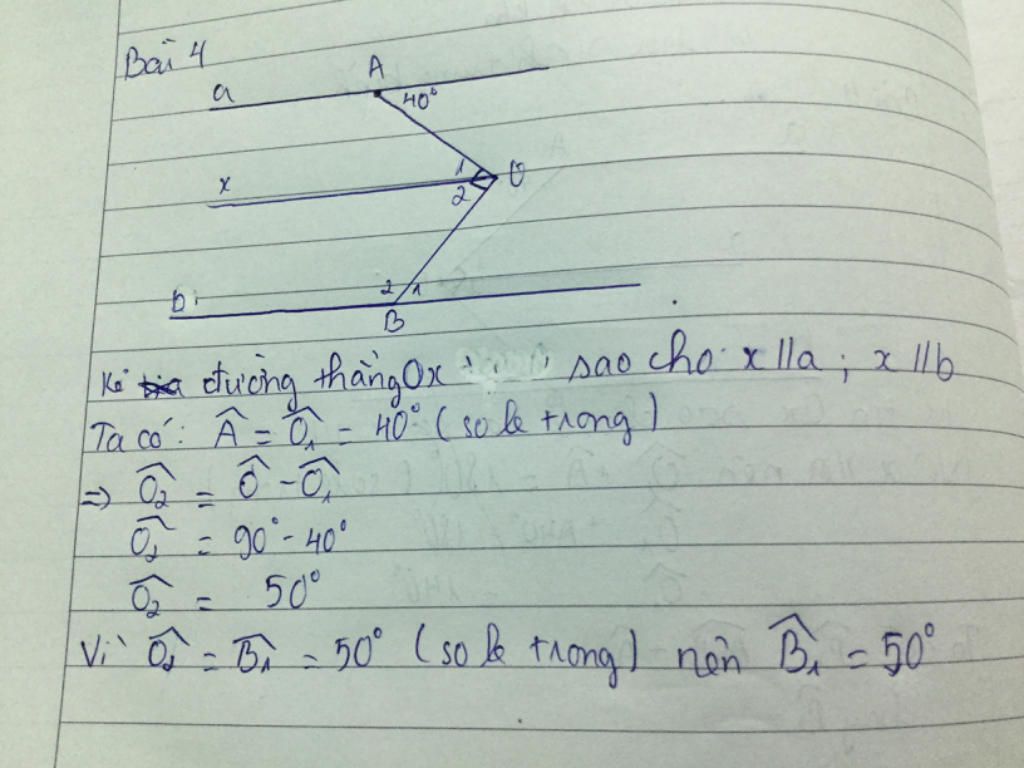 Bài 4
A
a
40°
x
1
O
2
b
2 1
B
Kẻ đường thẳng Ox sao cho x // a ; x // b
Ta có: Â = Ô₁ = 40° (so le trong)
=> Ô₂ = Ô - Ô₁
Ô₂ = 90° - 40°
Ô₂ = 50°
Vì Ô₂ = B̂₁ = 50° (so le trong) nên B̂₁ = 50°